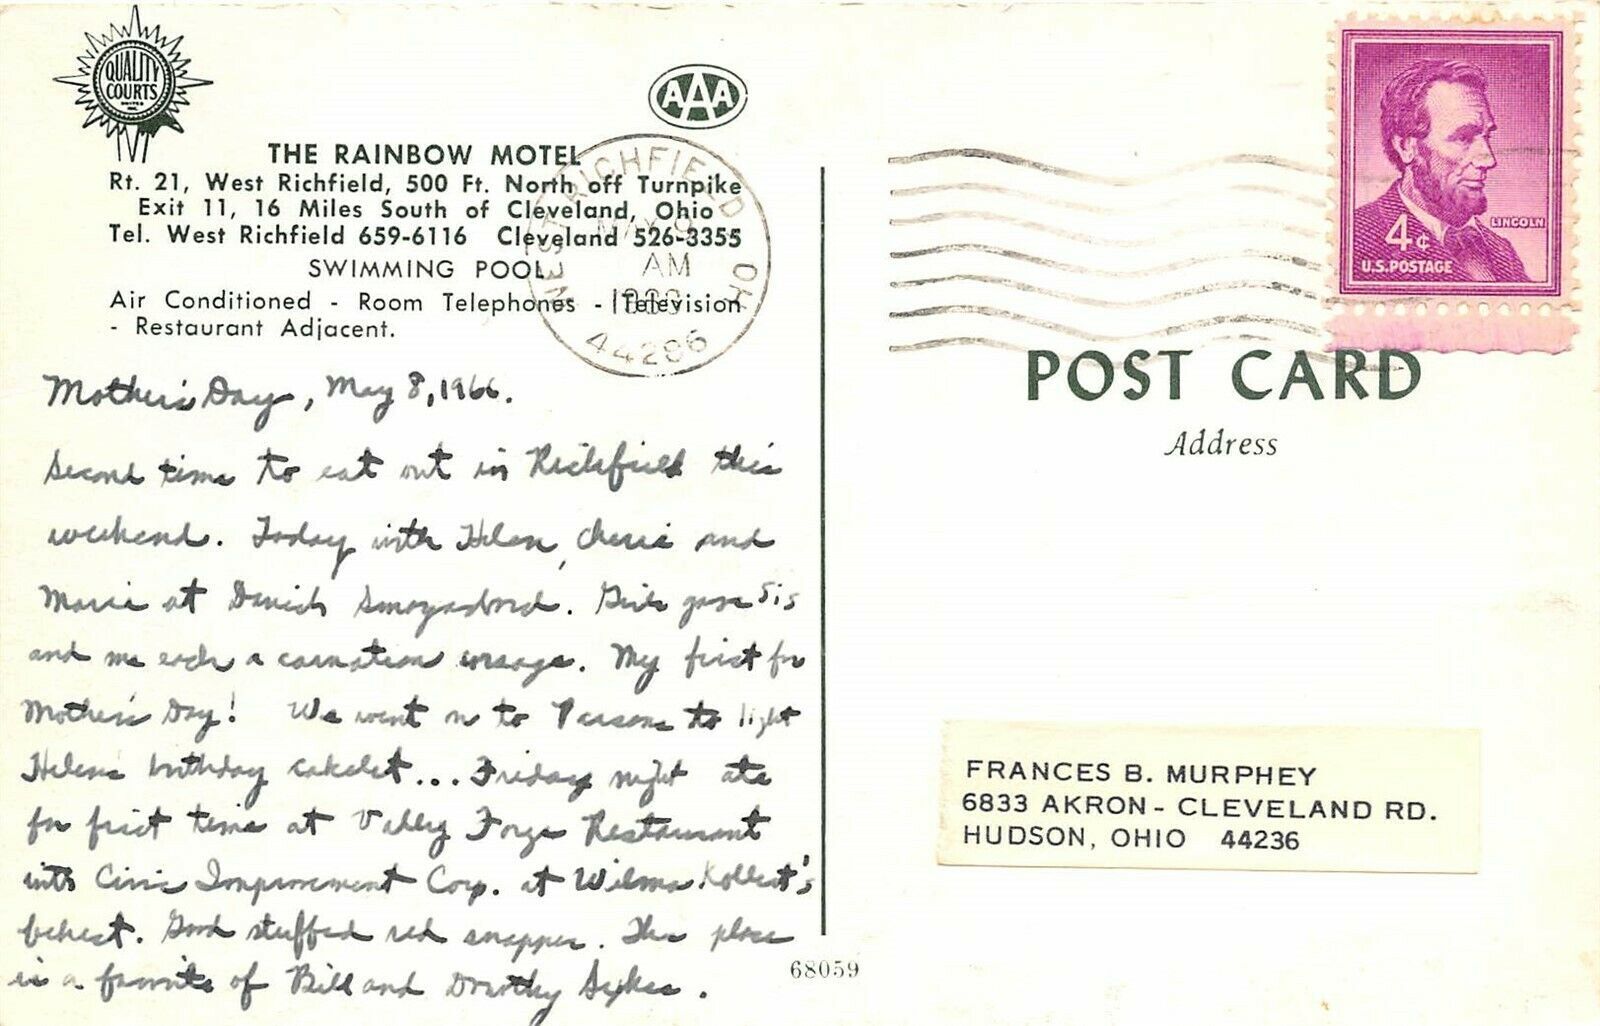 QUALITY
COURTS
UNITED
INC.
AAA
THE RAINBOW MOTEL
Rt. 21, West Richfield, 500 Ft. North off Turnpike
Exit 11, 16 Miles South of Cleveland, Ohio
Tel. West Richfield 659-6116 Cleveland 526-3355
SWIMMING POOL
Air Conditioned - Room Telephones - Television
- Restaurant Adjacent.
WEST RICHFIELD OH
MAY 9
AM
44286
Mother's Day, May 8, 1966.
Second time to eat out in Richfield this
weekend. Today with Helen, Cherie and
Marie at Danish Smogasbord. Girls gave Sis
and me each a carnation corsage. My first for
Mother's Day! We went on to Parsons to light
Helen's birthday cakelet... Friday night ate
for first time at Valley Forge Restaurant
with Civic Improvement Corp. at Wilma
behest. Good stuffed red snapper. This place
is a favorite of Bill and Dorothy Sykes.
68059
LINCOLN
4¢
U.S. POSTAGE
POST CARD
Address
FRANCES B. MURPHEY
6833 AKRON - CLEVELAND RD.
HUDSON, OHIO 44236